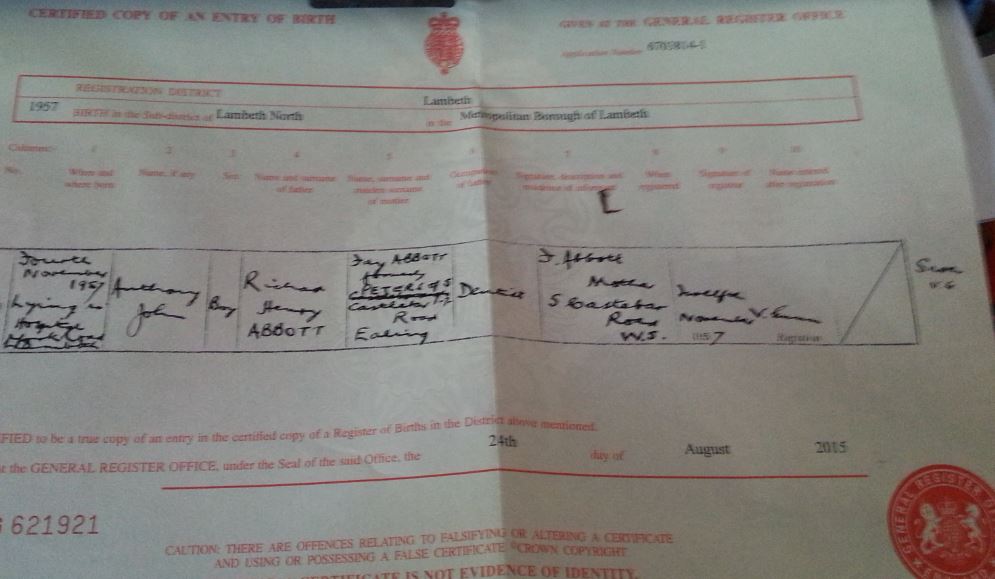 CERTIFIED COPY OF AN ENTRY OF BIRTH
GIVEN AT THE GENERAL REGISTER OFFICE
Application Number
REGISTRATION DISTRICT Lambeth
1957 BIRTH in the Sub-district of Lambeth North in the Metropolitan Borough of Lambeth
Columns:- 1 2 3 4 5 6 7 8 9 10
No. When and where born Name, if any Sex Name and surname of father Name, surname and maiden surname of mother Occupation of father Signature, description and residence of informant When registered Signature of registrar Name entered after registration
Fourth November 1957
Lying in Hospital
Anthony John
Boy
Richard Henry ABBOTT
Fay ABBOTT formerly
Road Ealing
Dentist
F. Abbott Mother
5 Castlebar Road W.5.
Twelfth November 1957
Registrar
CERTIFIED to be a true copy of an entry in the certified copy of a Register of Births in the District above mentioned.
at the GENERAL REGISTER OFFICE, under the Seal of the said Office, the 24th day of August 2015
621921
GENERAL REGISTER
CAUTION: THERE ARE OFFENCES RELATING TO FALSIFYING OR ALTERING A CERTIFICATE
AND USING OR POSSESSING A FALSE CERTIFICATE ©CROWN COPYRIGHT
CERTIFICATE IS NOT EVIDENCE OF IDENTITY.